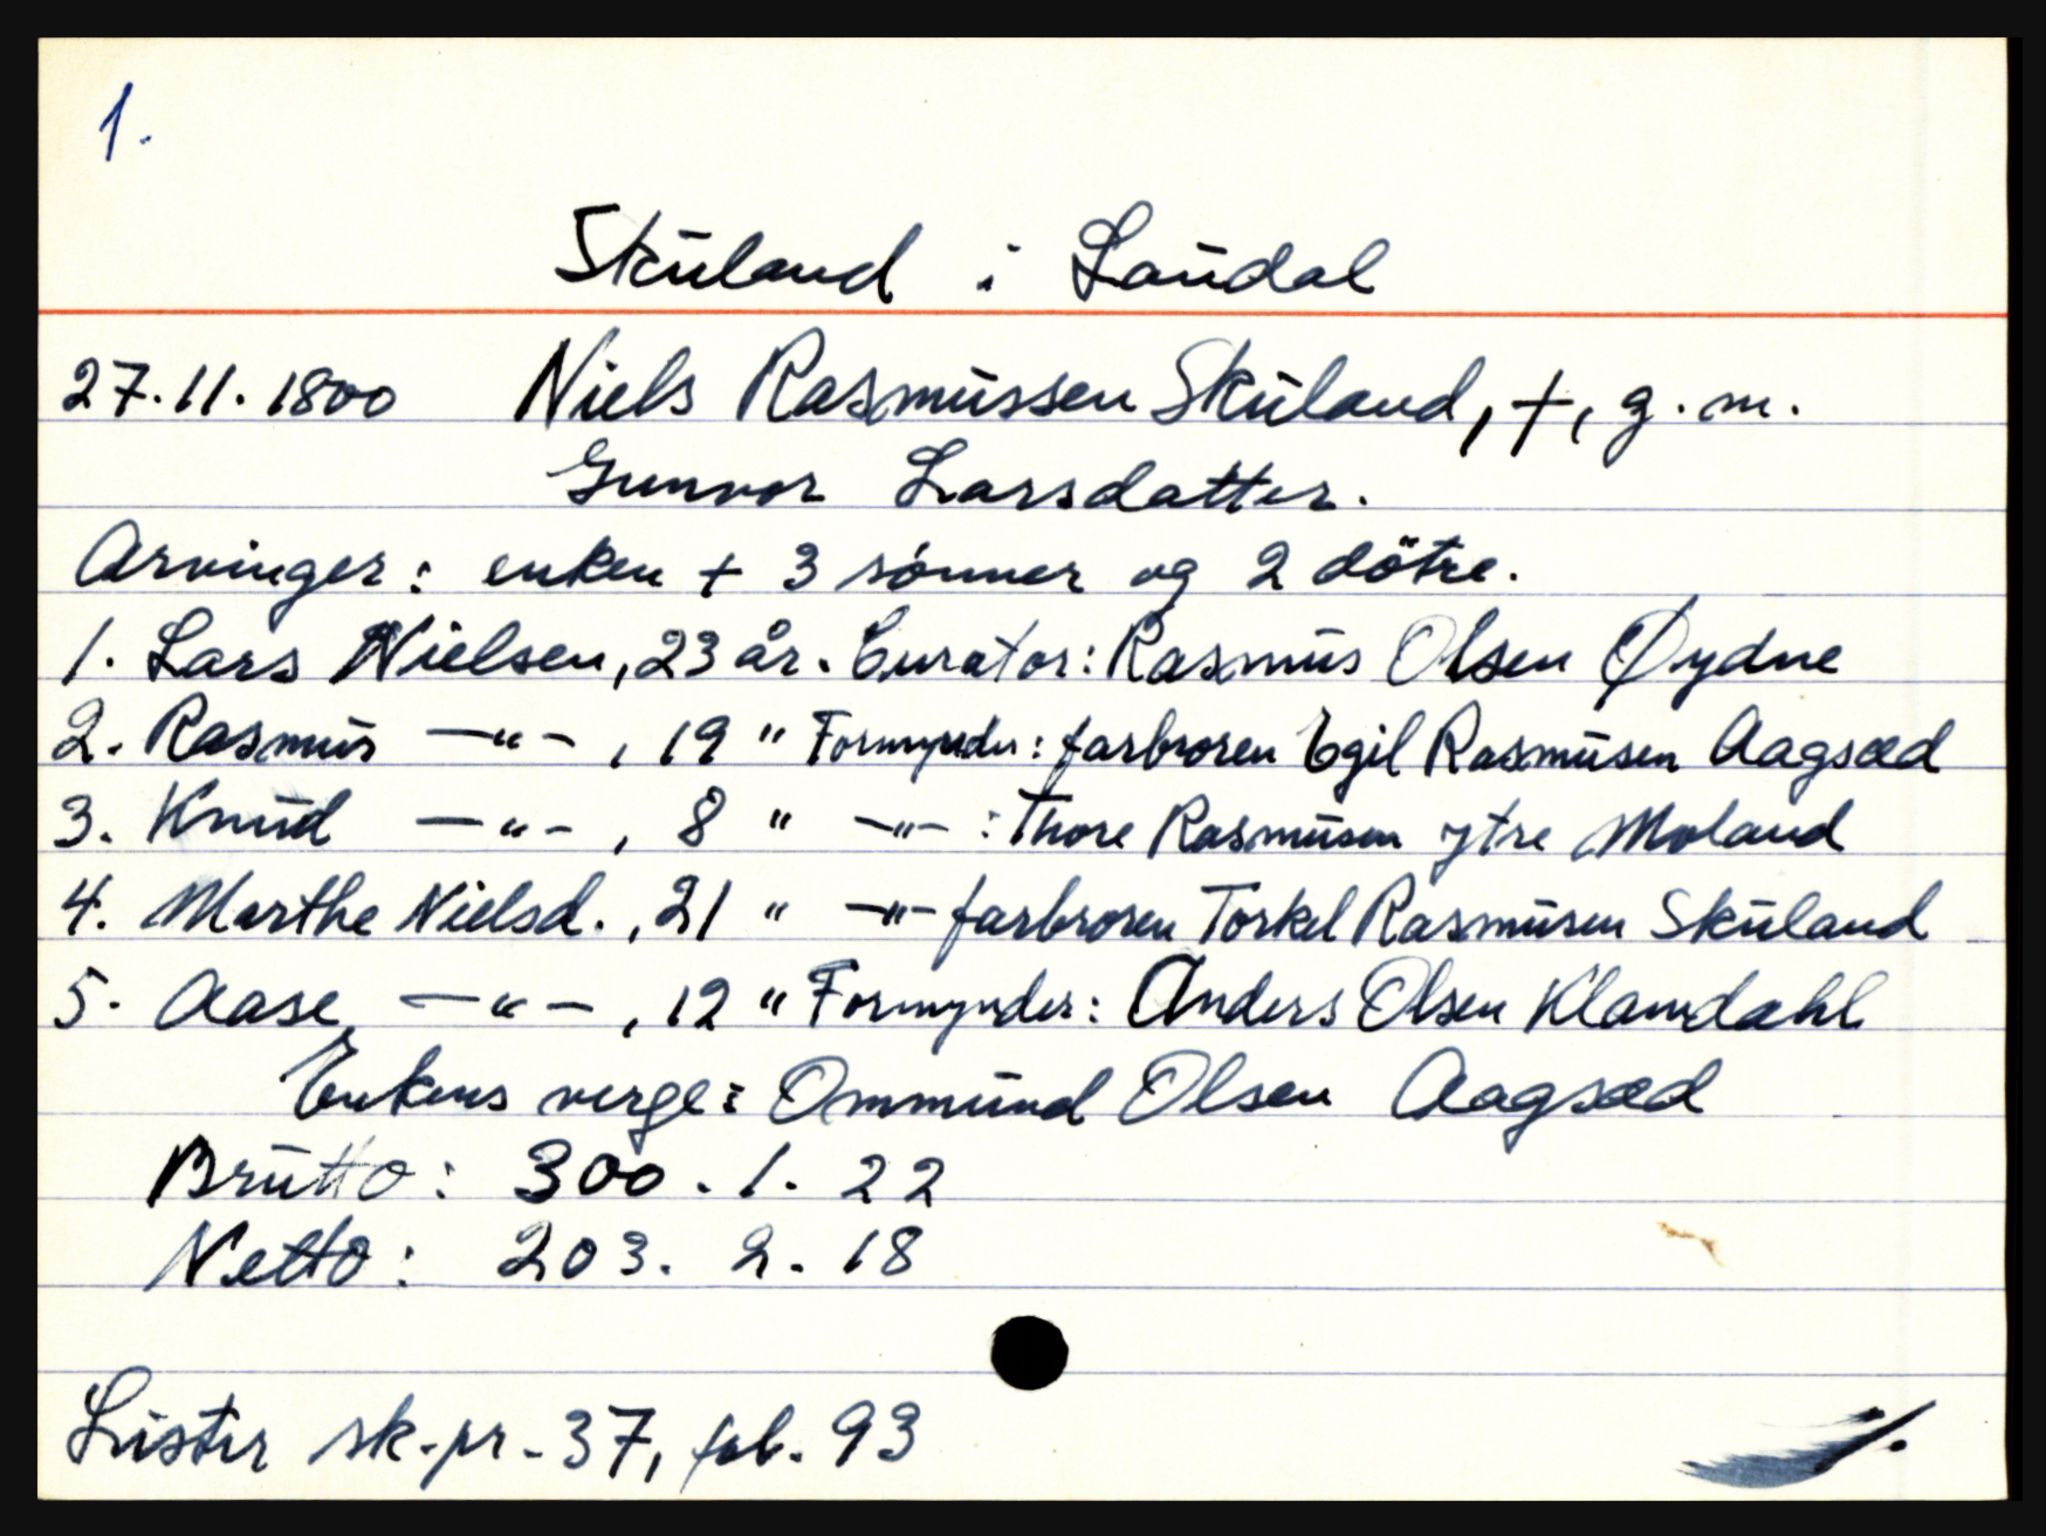 1.
Skuland i Laudal
27.11.1800 Niels Rasmussen Skuland, †, g.m.
Gunvor Larsdatter.
Arvinger: enken + 3 sønner og 2 dötre.
1. Lars Nielsen, 23 år. Curator: Rasmus Olsen Øydne
2. Rasmus —"—, 19 " Formynder: farbroren Egil Rasmusen Aagsæd
3. Knud —"—, 8 " —"— : Thore Rasmusen ytre Moland
4. Marthe Nielsd., 21 " —"— farbroren Torkel Rasmusen Skuland
5. Aase —"—, 12 " Formynder: Anders Olsen Klamdahl
Enkens verge: Ommund Olsen Aagsæd
Brutto: 300. 1. 22
Netto: 203. 2. 18
Lister sk.pr. 37, fol. 93